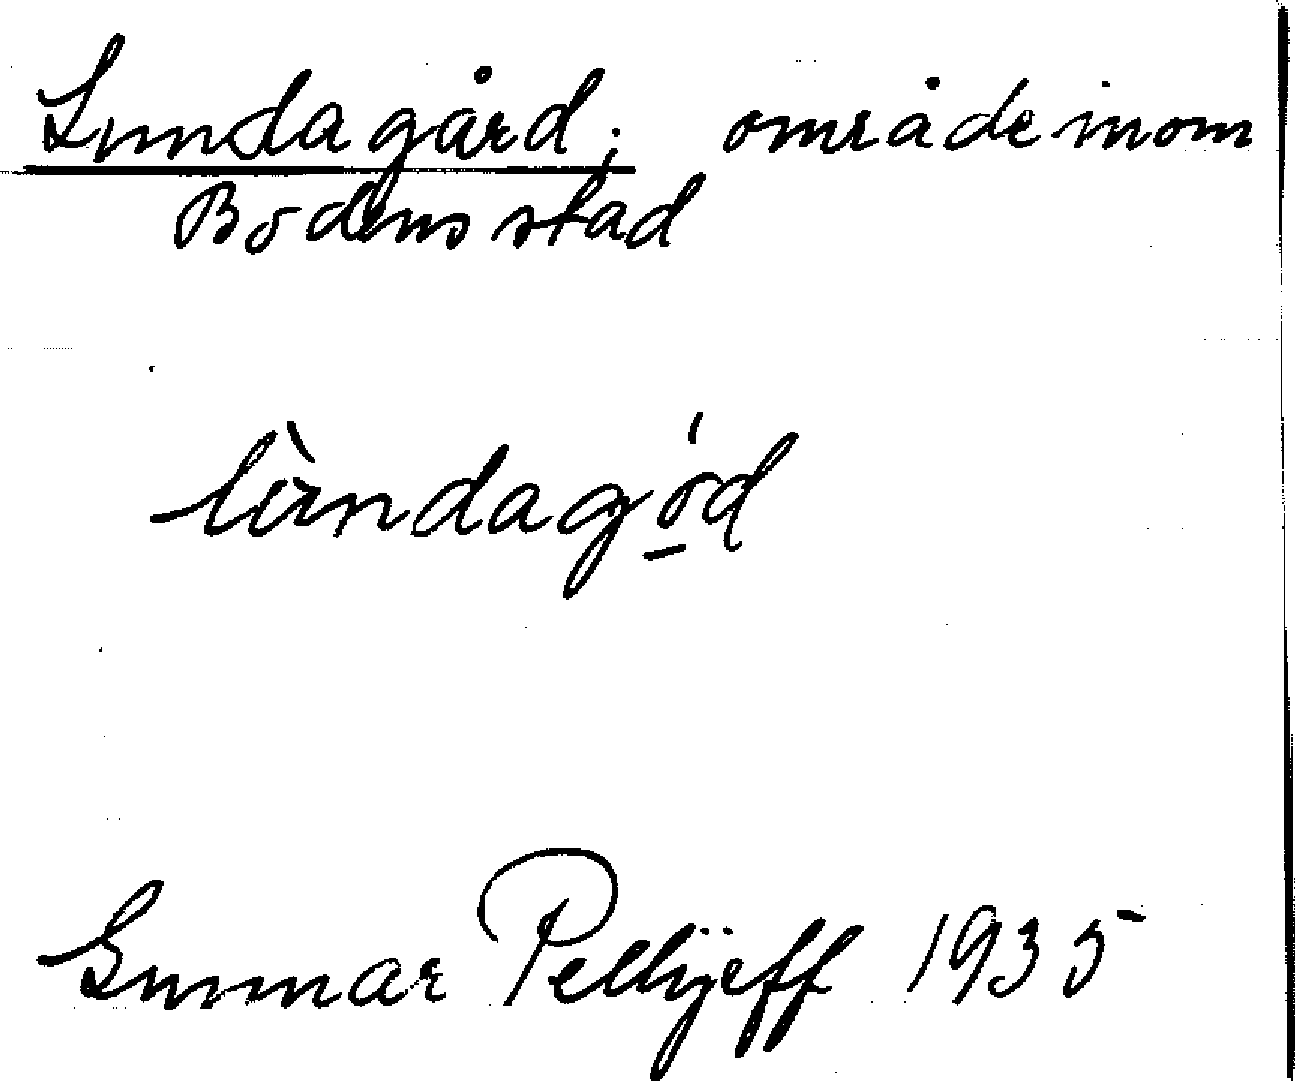 Lundagård; område inom
Bodens stad
Gunnar Pellijeff 1935